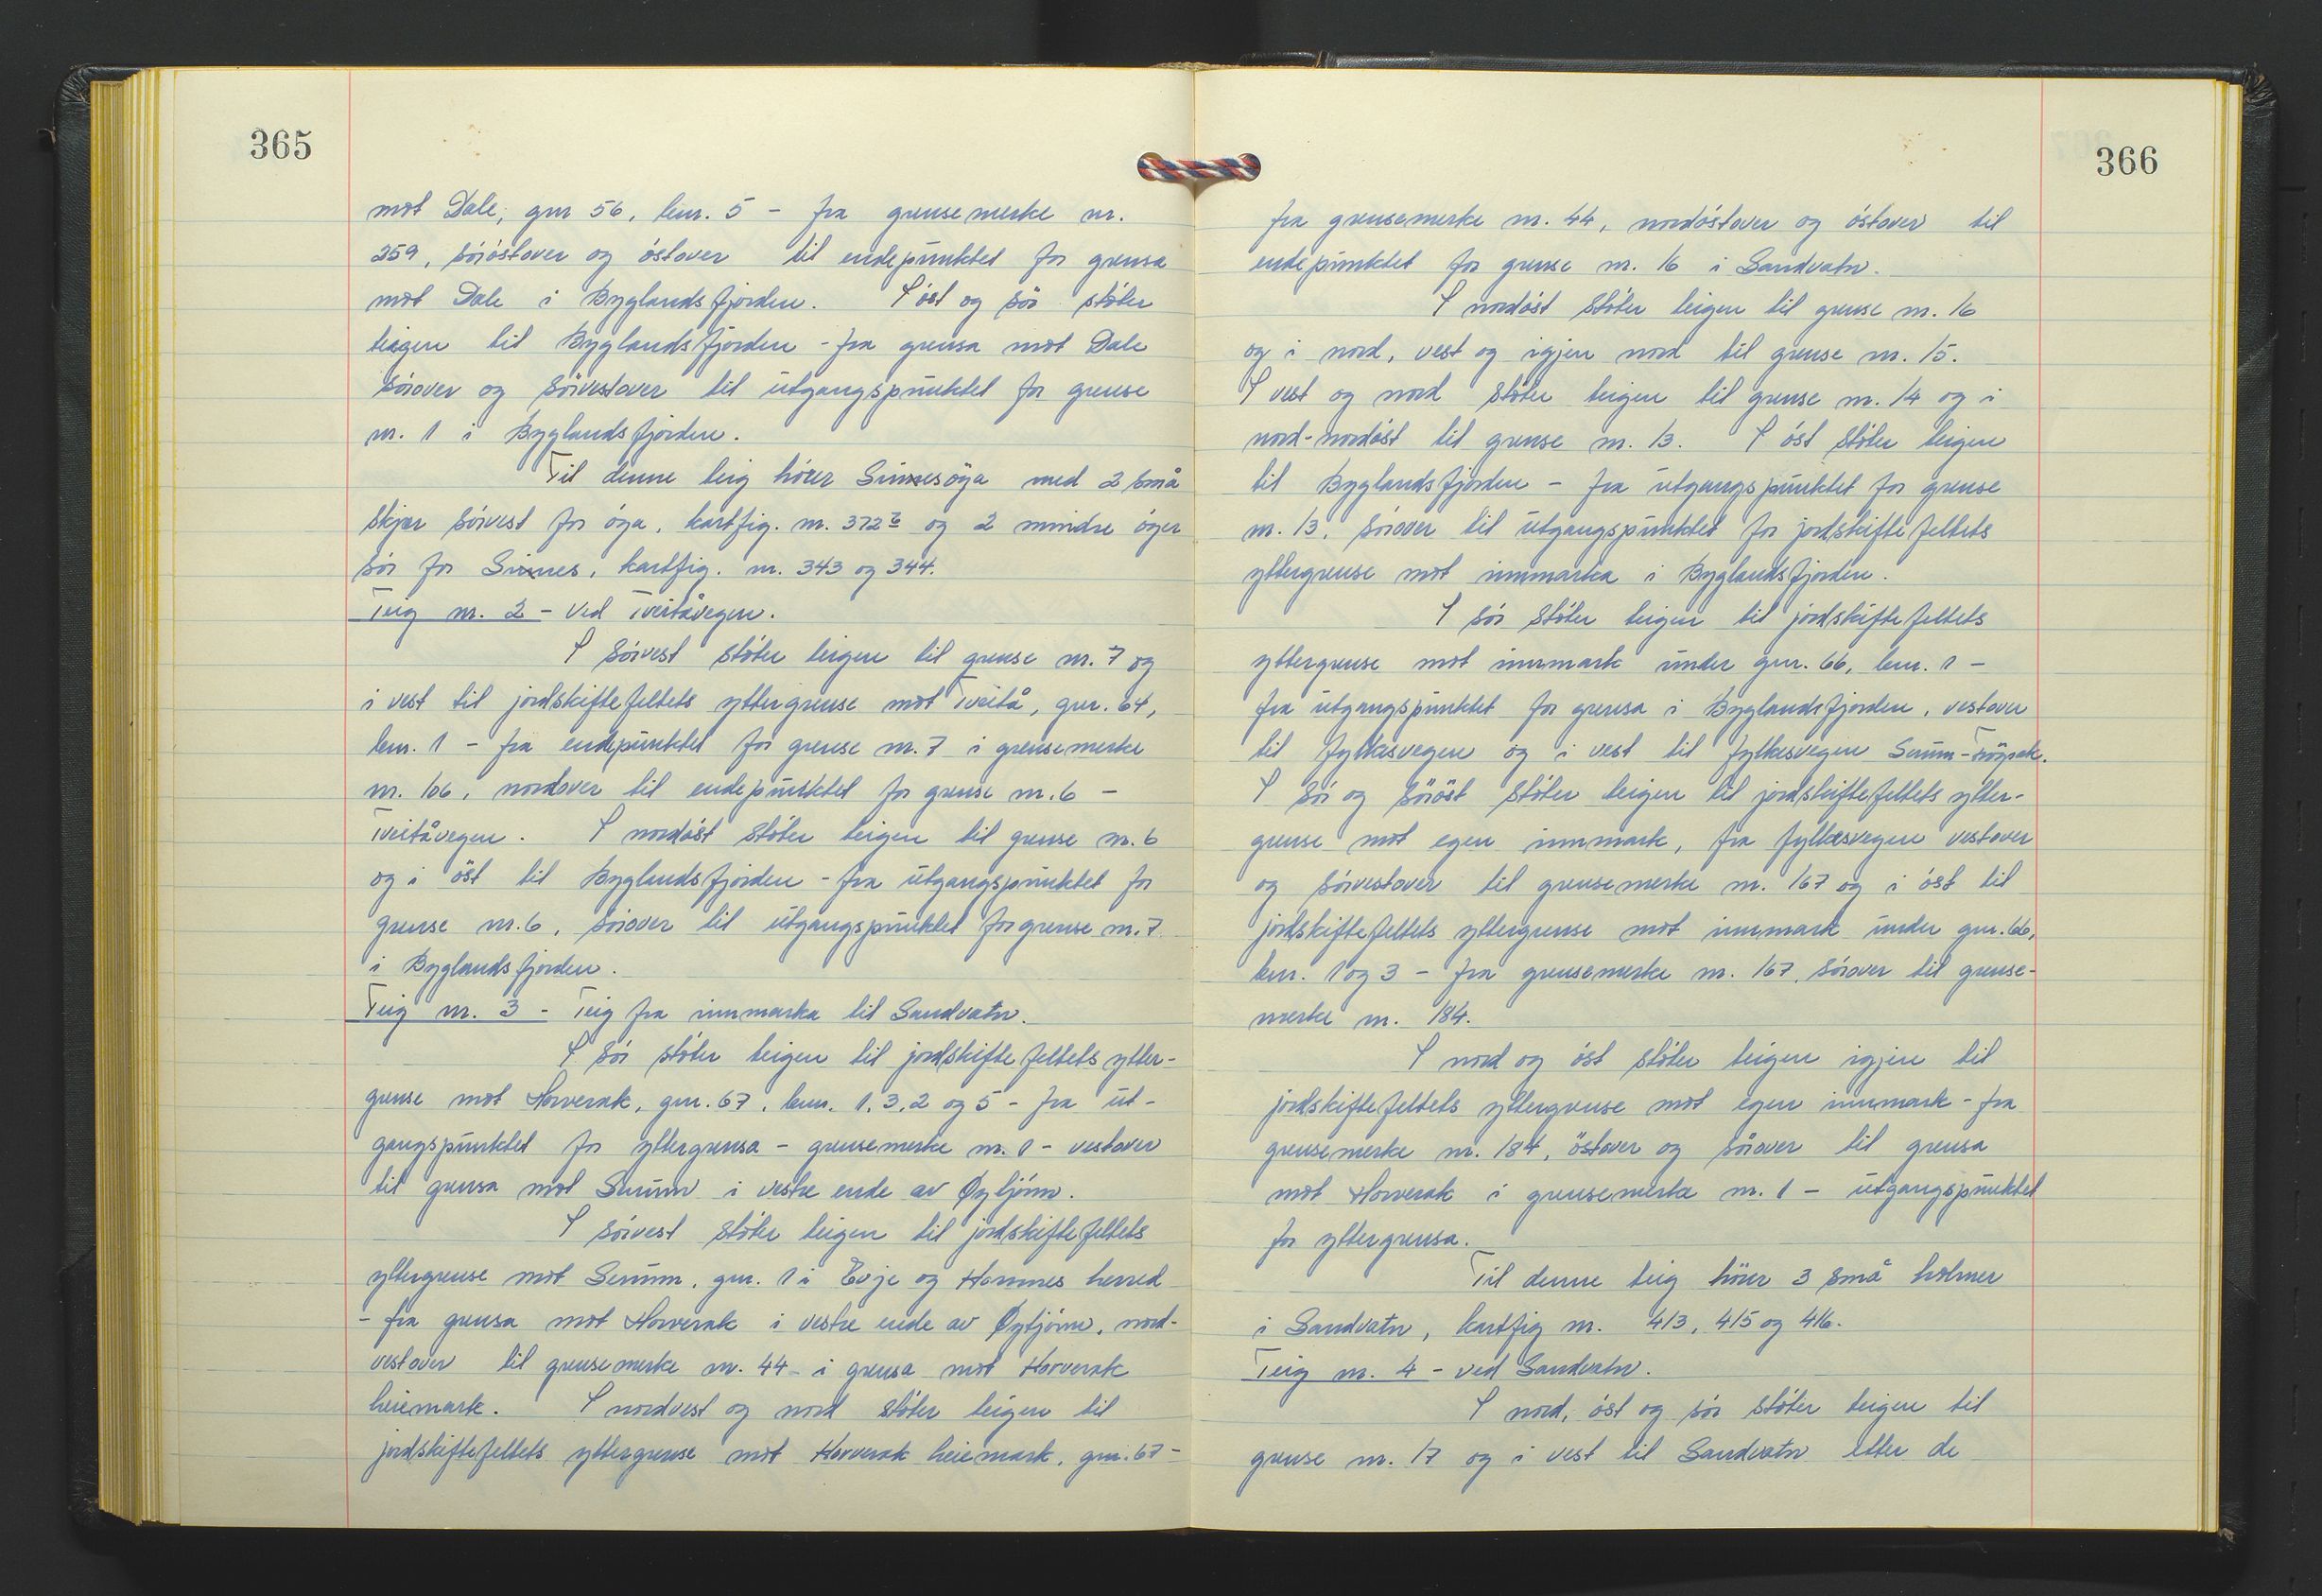 365
mot Dale, gnr 56, bnr. 5 - fra grensemerke nr.
259, söröstover og östover til endepunktet for grensa
mot Dale i Byglandsfjorden. I öst og sör stöter
teigen til Byglandsfjorden - fra grensa mot Dale
sörover og sörvestover til utgangspunktet for grense
nr. 1 i Byglandsfjorden.
Til denne teig hörer Sinnesöya med 2 små
skjær sörvest for öya, kartfig. nr. 372 b og 2 mindre öyer
sör for Sinnes, kartfig. nr. 343 og 344.
Teig nr. 2 - Ved Tveitåvegen.
I sörvest stöter teigen til grense nr. 7 og
i vest til jordskiftefeltets yttergrense mot Tveitå, gnr. 64,
bnr. 1 - fra endepunktet for grense nr. 7 i grensemerke
nr. 106, nordover til endepunktet for grense nr. 6 -
Tveitåvegen. I nordöst stöter teigen til grense nr. 6
og i öst til Byglandsfjorden - fra utgangspunktet for
grense nr. 6, sörover til utgangspunktet for grense nr. 7
i Byglandsfjorden.
Teig nr. 3 - Teig fra innmarka til Sandvatn.
I sör stöter teigen til jordskiftefeltets ytter-
grense mot Horverak, gnr. 67, bnr. 1, 3, 2 og 5 - fra ut-
gangspunktet for yttergrensa - grensemerke nr. 1 - vestover
til grensa mot Senum i vestre ende av Öytjönn.
I sörvest stöter teigen til jordskiftefeltets
yttergrense mot Senum, gnr. 1 i Evje og Hornnes herred
- fra grensa mot Horverak i vestre ende av Öytjönn, nord-
vestover til grensemerke nr. 44 - i grensa mot Horverak
heiemark. I nordvest og nord stöter teigen til
jordskiftefeltets yttergrense mot Horverak heiemark, gnr. 67 -
366
fra grensemerke nr. 44, nordöstover og östover til
endepunktet for grense nr. 16 i Sandvatn.
I nordöst stöter teigen til grense nr. 16
og i nord, vest og igjen nord til grense nr. 15.
I vest og nord stöter teigen til grense nr. 14 og i
nord-nordöst til grense nr. 13. I öst stöter teigen
til Byglandsfjorden - fra utgangspunktet for grense
nr. 13, sörover til utgangspunktet for jordskiftefeltets
yttergrense mot innmarka i Byglandsfjorden.
I sör stöter teigen til jordskiftefeltets
yttergrense mot innmark under gnr. 66, bnr. 1 -
fra utgangspunktet for grensa i Byglandsfjorden, vestover
til fylkesvegen og i vest til fylkesvegen Senum-
I sör og söröst stöter teigen til jordskiftefeltets ytter-
grense mot egen innmark, fra fylkesvegen vestover
og sörvestover til grensemerke nr. 167 og i öst til
jordskiftefeltets yttergrense mot innmark under gnr. 66,
bnr. 1 og 3 - fra grensemerke nr. 167, sörover til grense-
merke nr. 184.
I nord og öst stöter teigen igjen til
jordskiftefeltets yttergrense mot egen innmark - fra
grensemerke nr. 184, östover og sörover til grensa
mot Horverak i grensemerke nr. 1 - utgangspunktet
for yttergrensa.
Til denne teig hörer 3 små holmer
i Sandvatn, kartfig nr. 413, 415 og 416.
Teig nr. 4 - ved Sandvatn.
I nord, öst og sör stöter teigen til
grense nr. 17 og i vest til Sandvatn etter de